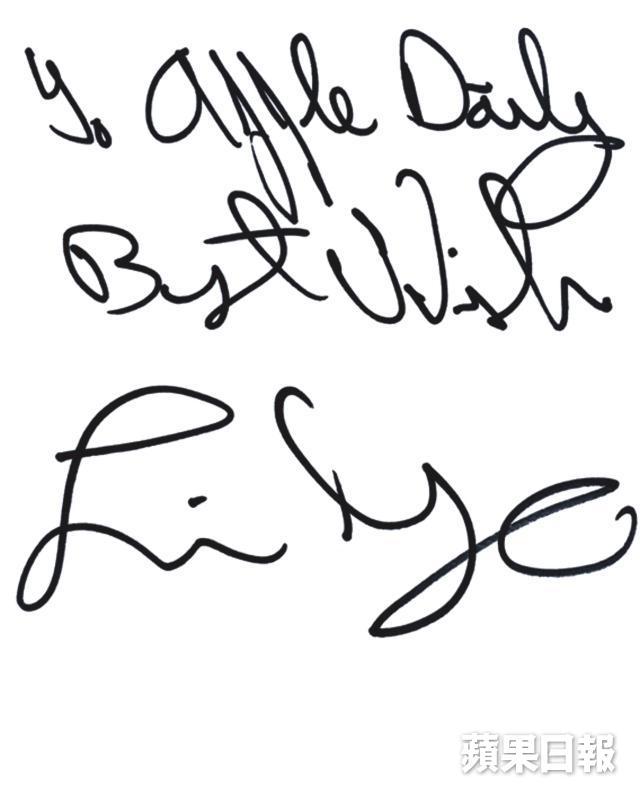 To Apple Daily
Best Wish
蘋果日報